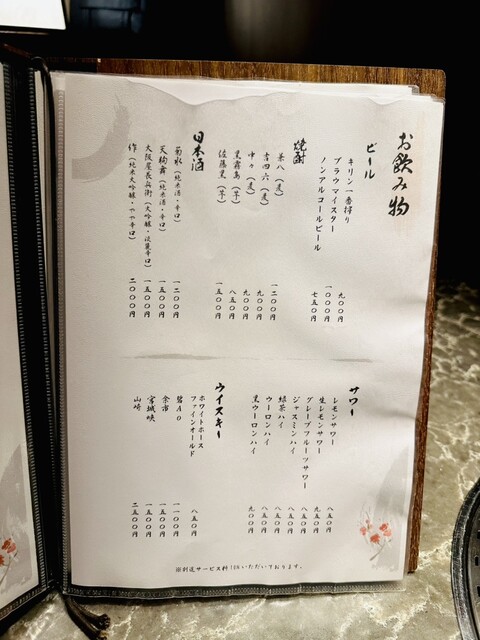 お飲み物
ビール
キリン一番搾り 九〇〇円
ブラウマイスター 一〇〇〇円
ノンアルコールビール 七五〇円
焼酎
兼八(麦) 一二〇〇円
吉四六(麦) 九〇〇円
中々(麦) 九〇〇円
黒霧島(芋) 八五〇円
佐藤黒(芋) 一五〇〇円
日本酒
菊水(純米酒・辛口) 一二〇〇円
天狗舞(純米酒・辛口) 一五〇〇円
大阪屋長兵衛(大吟醸・淡麗辛口) 一五〇〇円
作(純米大吟醸・やや辛口) 二〇〇〇円
サワー
レモンサワー 八五〇円
生レモンサワー 九五〇円
グレープフルーツサワー 八五〇円
ジャスミンハイ 八五〇円
緑茶ハイ 八五〇円
ウーロンハイ 八五〇円
黒ウーロンハイ 九〇〇円
ウイスキー
ホワイトホース
ファインオールド 八五〇円
碧Ao 一一〇〇円
余市 一五〇〇円
宮城峡 一五〇〇円
山崎 二五〇〇円
※別途サービス料10%いただいております。